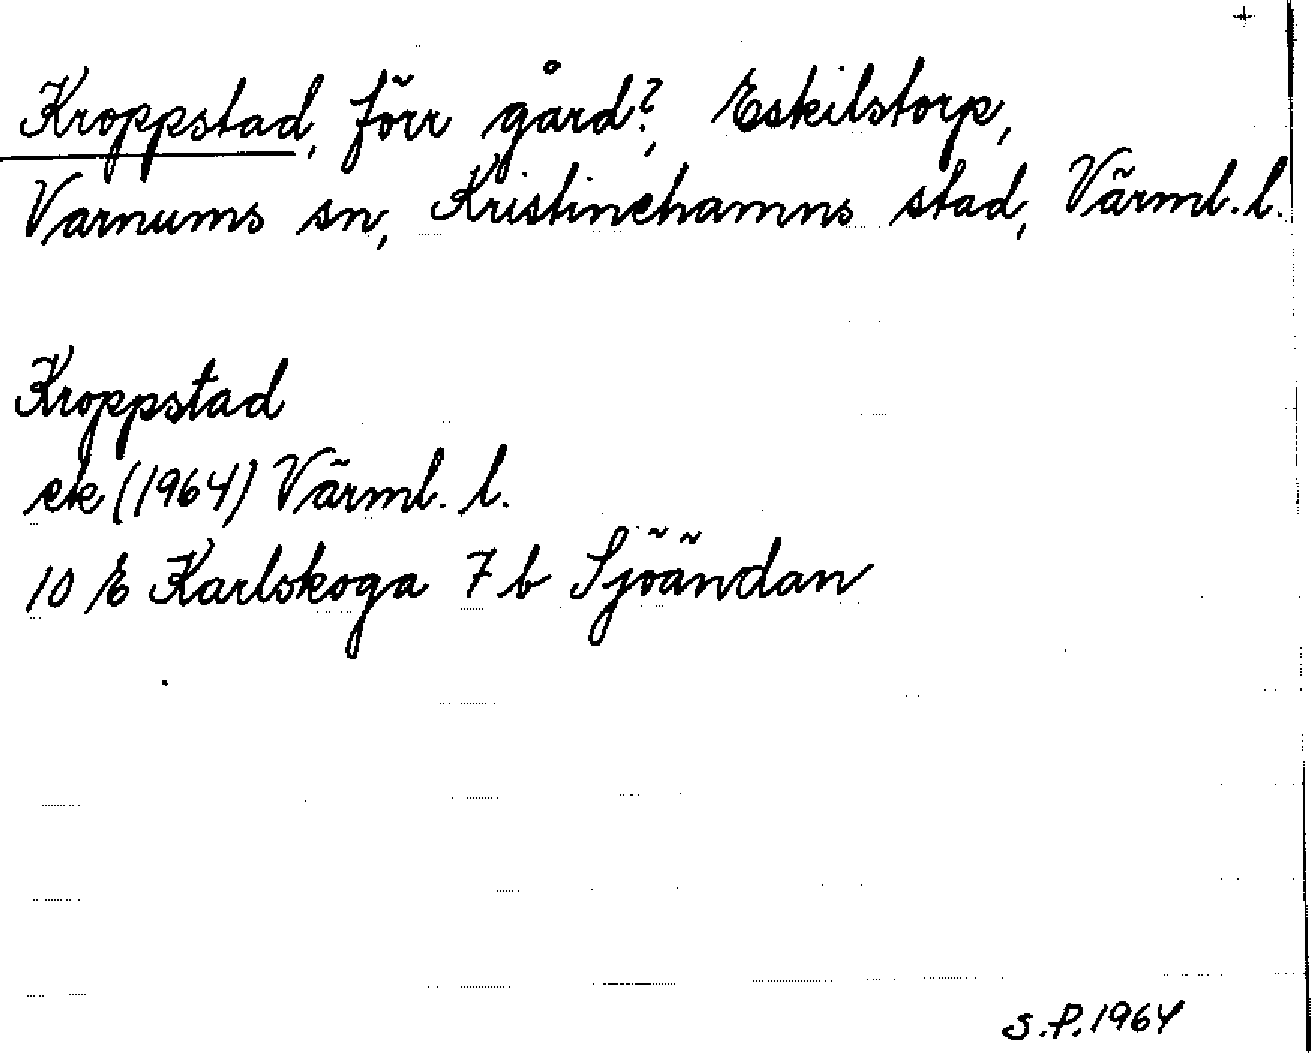 +
Kroppstad, förr gård?, Eskilstorp,
Varnums sn, Kristinehamns stad, Värml. l.
Kroppstad
ek (1964) Värml. l.
10 E Karlskoga 7 b Sjöändan
S.P. 1964